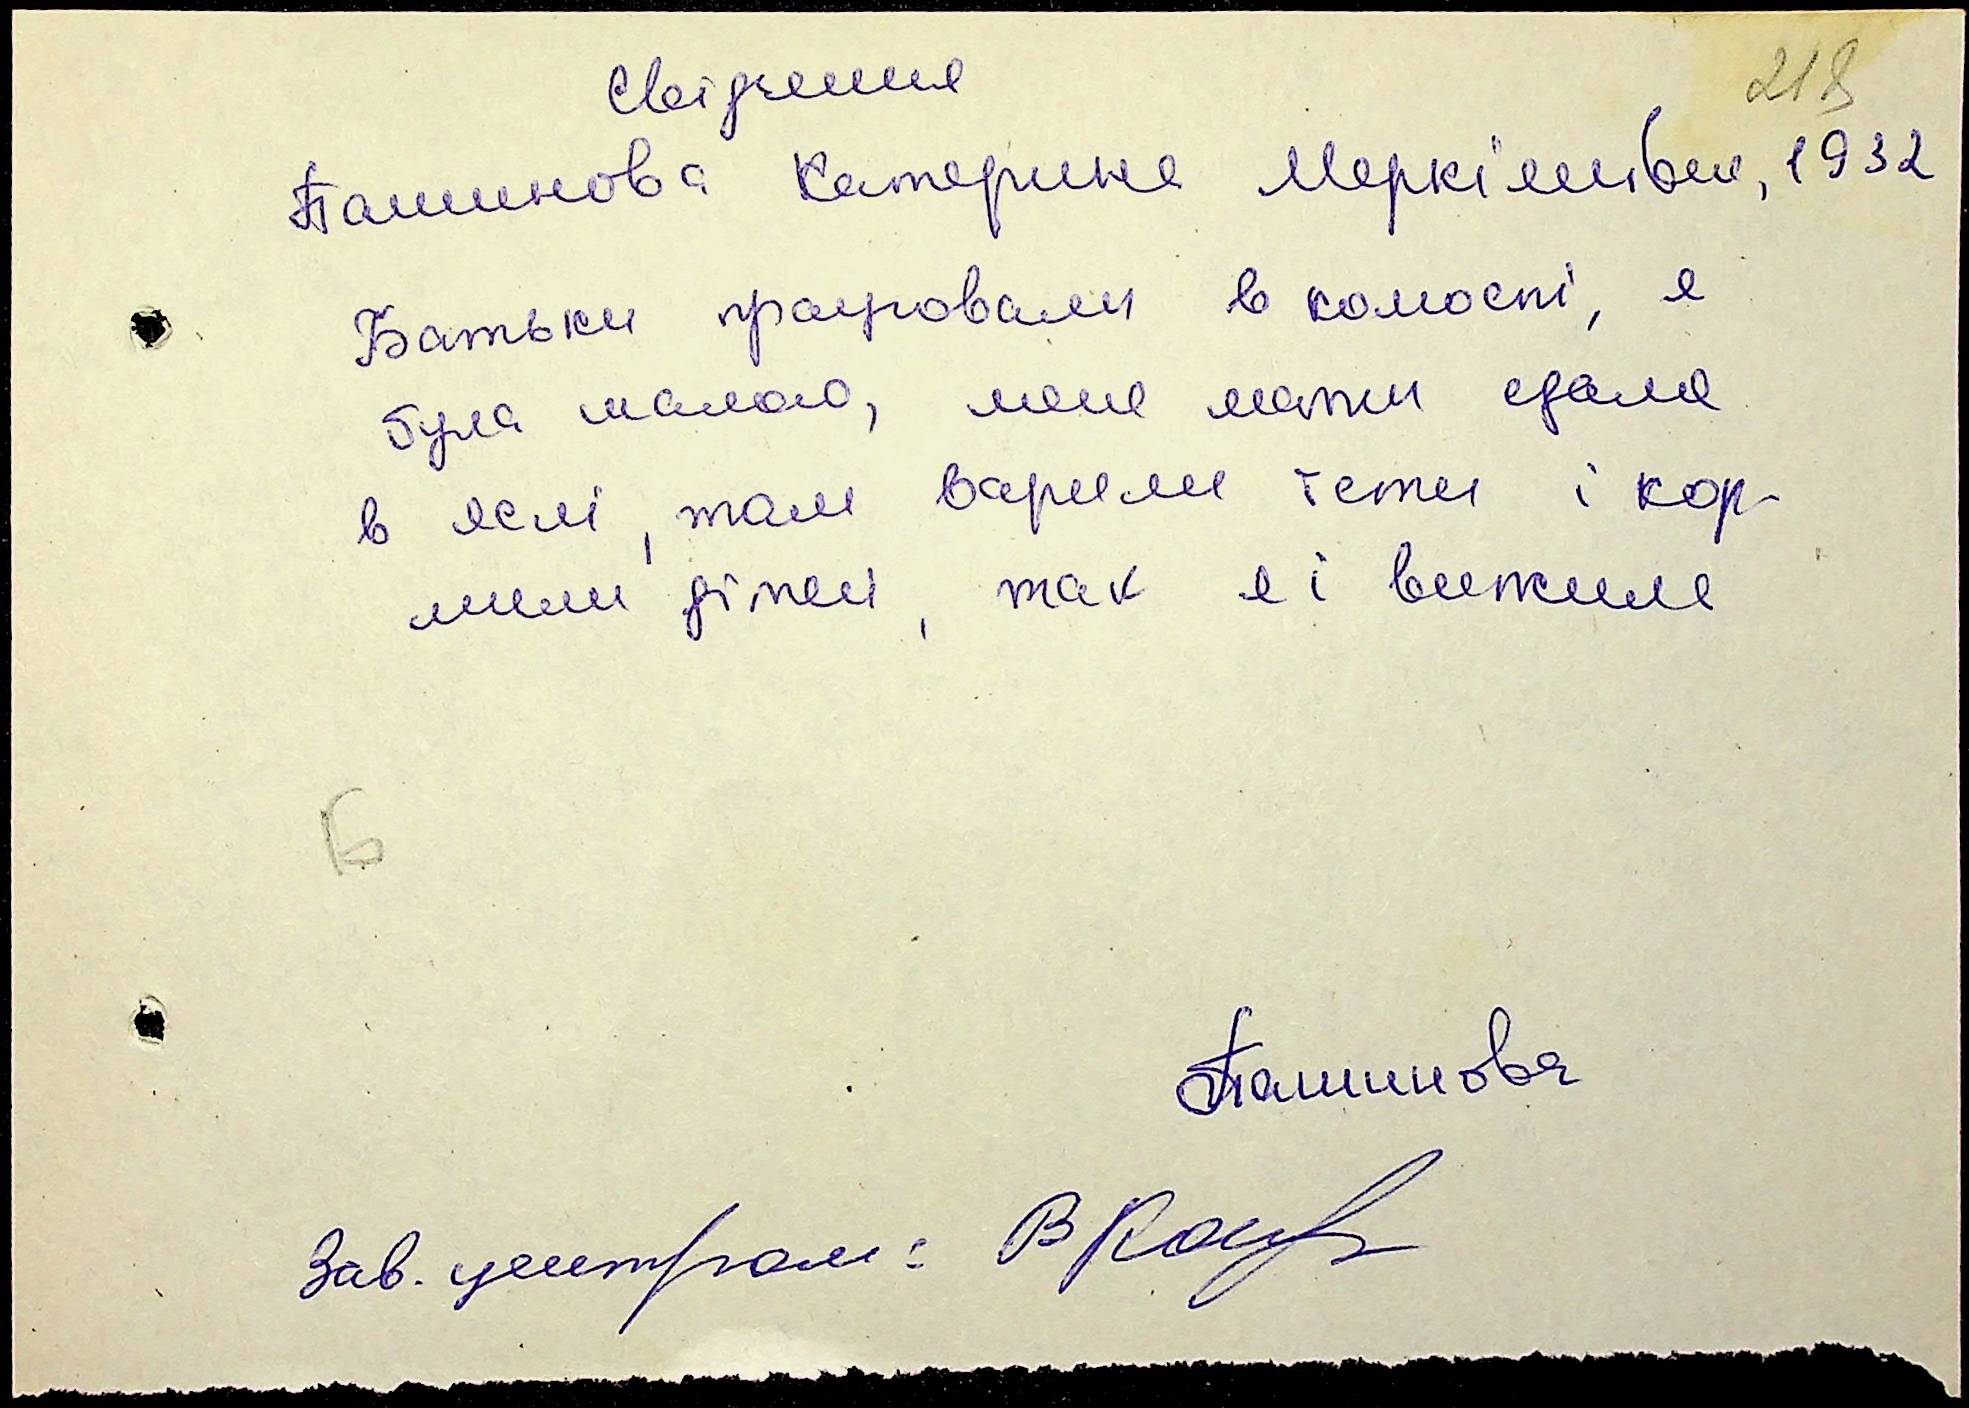 218
Свідчення
Пашинова Катерина Меркіянівна, 1932
Батьки працювали в комоспі, я
була малою, мене мати сдала
в яслі, там варили їсти і кор-
мили дітей, так я і вижила
Б
Пашинова
Зав. центром: